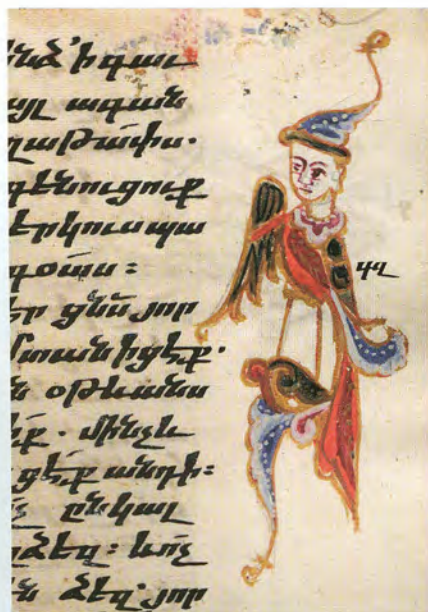 ինձ՝ ի գաւ
այլ ագան
ղաթափս.
զգենուցուք
երկուս պա
գօտս :
եր ցնս յոր
մտանիցէք.
ն օթևանս
էք. մինչև
ցէք անդի:
չ ընկալ
ձեզ: և ոչ
ն ձեզ՝ յոր